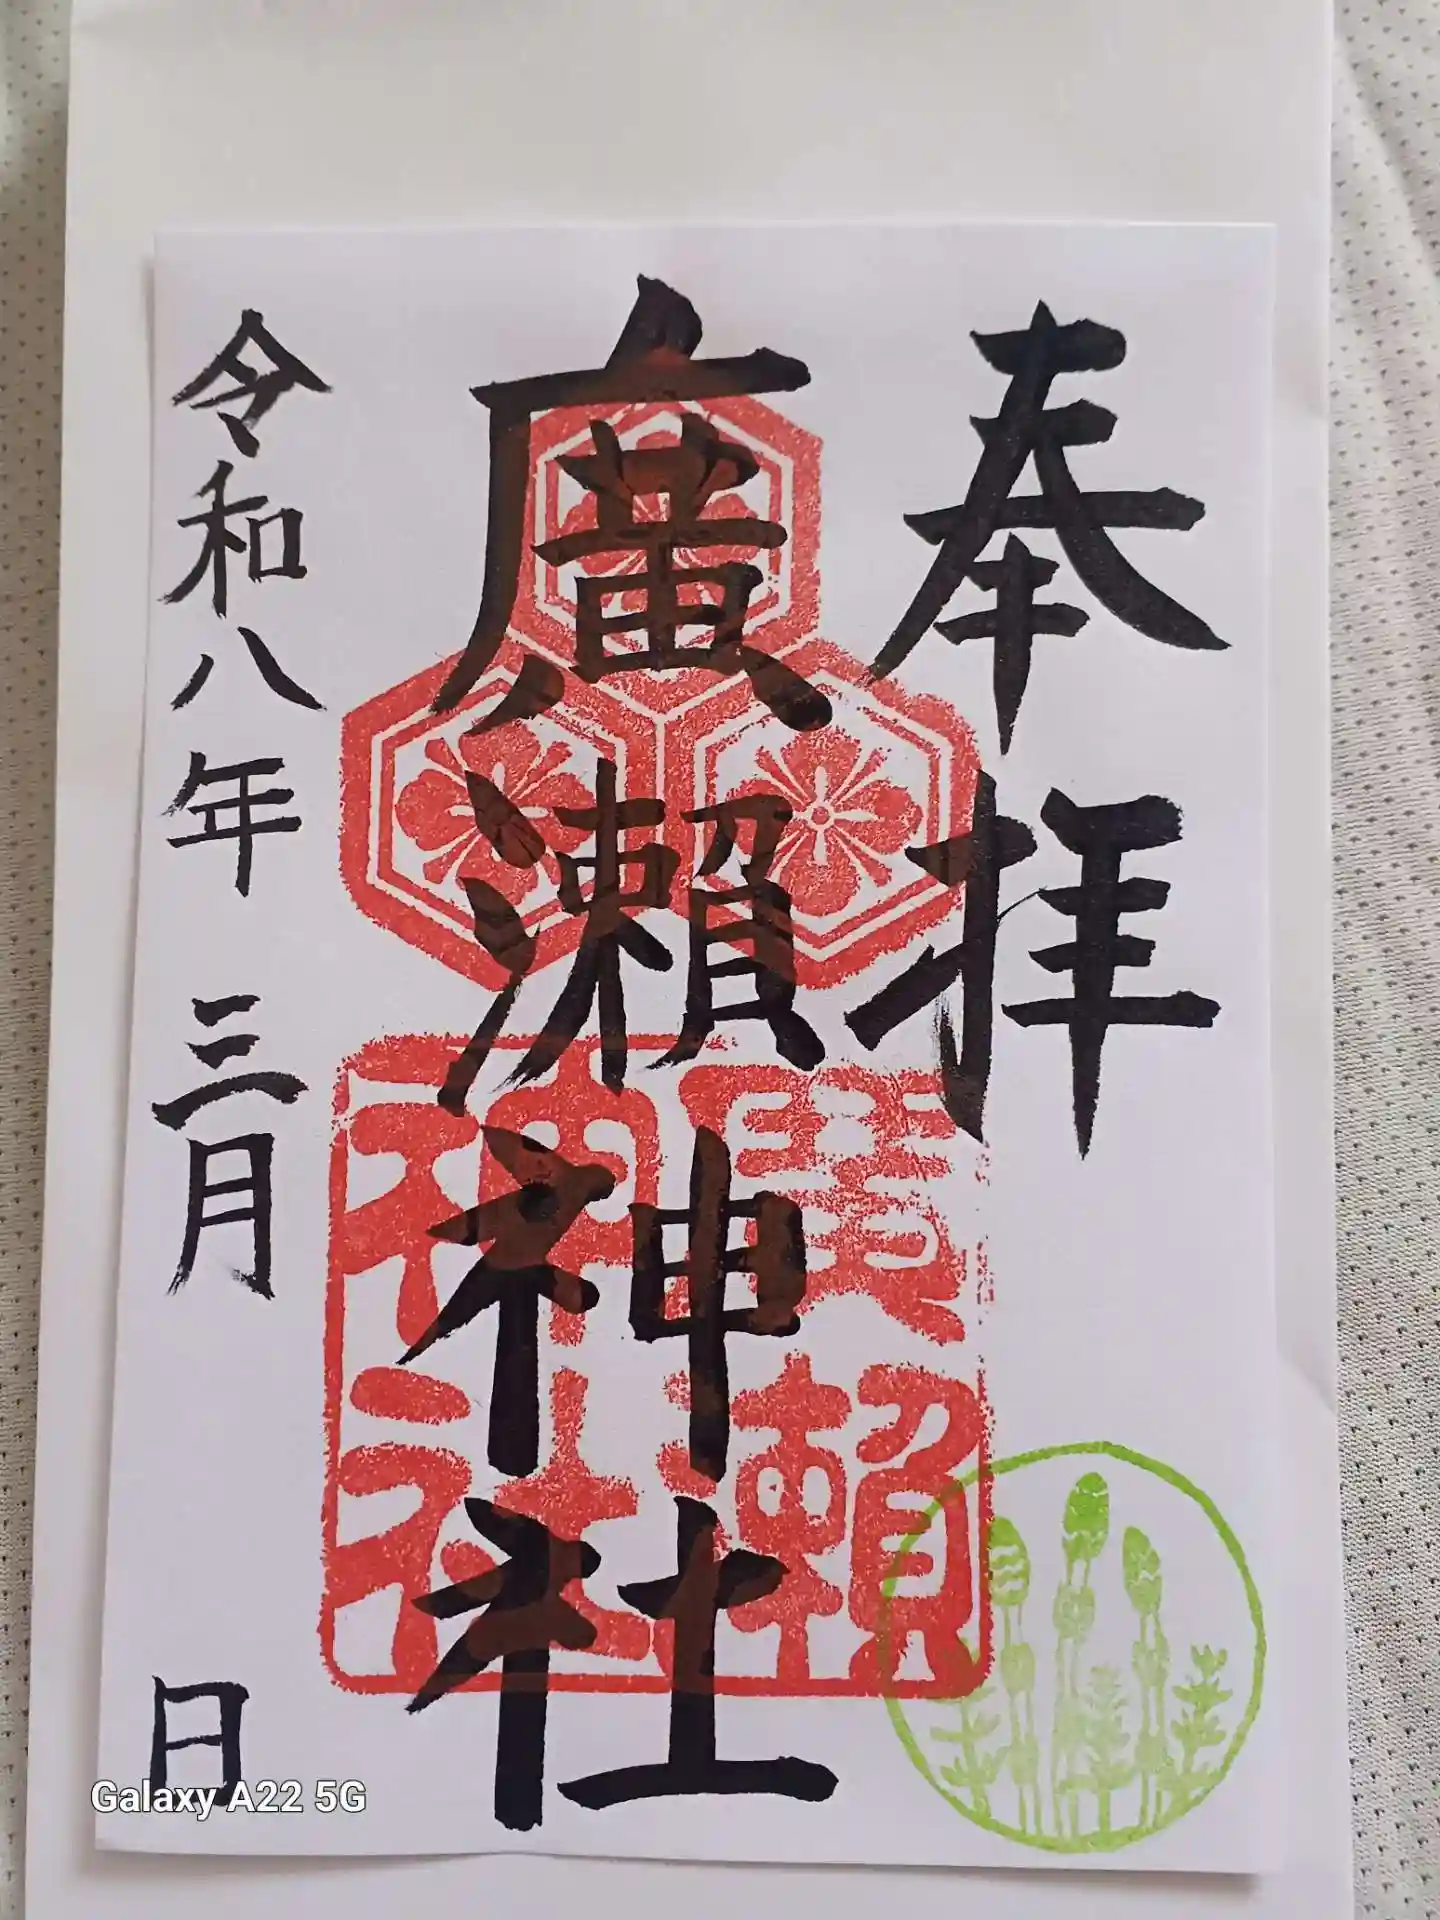 奉拝
廣瀬神社
廣瀬神社
令和八年 三月 日
Galaxy A22 5G